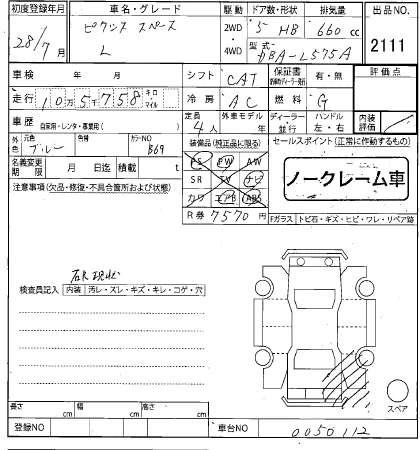 初度登録年月 車名・グレード 駆動 ドア数・形状 排気量 出品NO.
28/7月 L 2WD・4WD 5 HB 660cc 2111
型式 DBA-L575A
車検 年 月 シフト CAT 保証書 有・無 評価点
走行 10 5 7 5 8 キロ マイル 冷房 AC 燃料 G
車歴 自家用・レンタ・事業用( ) 定員 4人 外車モデル 年 ディーラー 並行 ハンドル 左・右 内装評価
外色 元色 ブルー 色替 カラーNO B69 装備品(純正品に限る) セールスポイント(正常に作動するもの)
名義変更期限 月 日迄 積載 t PS PW AW
SR TV ナビ ノークレーム車
注意事項(欠品・修復・不具合箇所および状態) カワ エアB ABS
R券 7570円 Fガラス トビ石・キズ・ヒビ・ワレ・リペア跡
現状
検査員記入 内装 汚レ・スレ・キズ・キレ・コゲ・穴
長さ cm 幅 cm 高さ cm スペア
登録NO 車台NO 0050112